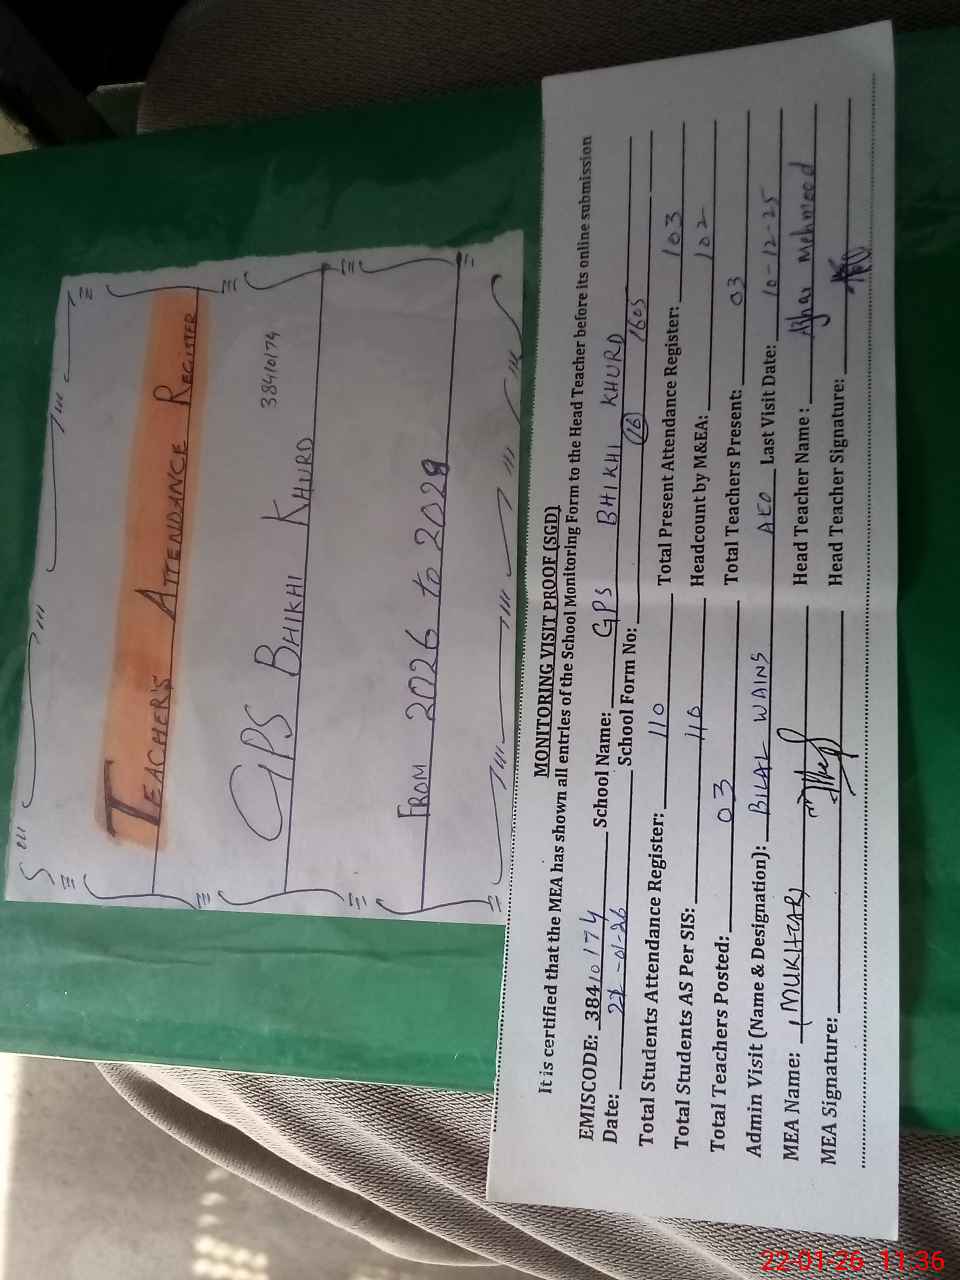 TEACHER'S ATTENDANCE REGISTER
GPS BHIKHI KHURD 38410174
FROM 2026 to 2028
MONITORING VISIT PROOF (SGD)
It is certified that the MEA has shown all entries of the School Monitoring Form to the Head Teacher before its online submission
EMISCODE: 38410174 School Name: GPS BHIKHI KHURD
Date: 22-01-26 School Form No: (16) 1605
Total Students Attendance Register: 110 Total Present Attendance Register: 103
Total Students AS Per SIS: 110 Headcount by M&EA: 102
Total Teachers Posted: 03 Total Teachers Present: 03
Admin Visit (Name & Designation): BILAL WAINS AEO Last Visit Date: 10-12-25
MEA Name: MUKHTAR Head Teacher Name: Azhar Mehmood
MEA Signature: Head Teacher Signature:
22-01-26 11:36